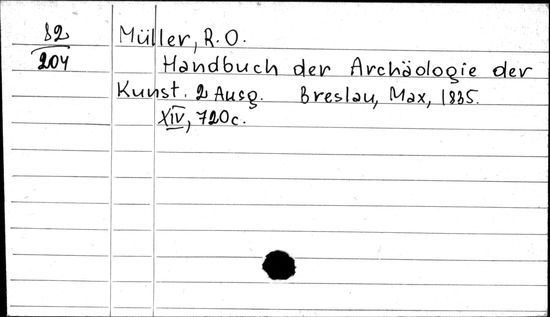 82
204
Müller, R.O.
Handbuch der Archäologie der
Kunst. 2 Ausg. Breslau, Max, 1835.
XIV, 720c.